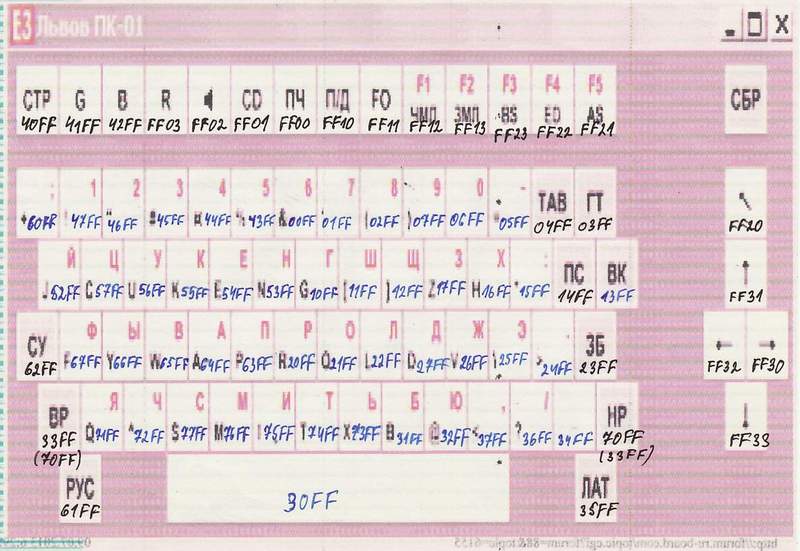 ЕЗ Львов ПК-01
СТР G B R CD ПЧ П/Д F0 F1 F2 F3 F4 F5 СБР
ЧМП ЗМП BS ED AS
40FF 41FF 42FF FF03 FF02 FF01 FF00 FF10 FF11 FF12 FF13 FF23 FF22 FF21
; 1 2 3 4 5 6 7 8 9 0 - ТАВ ГТ
+ 60FF ! 47FF " 46FF # 45FF 44FF 43FF & 00FF ' 01FF ( 02FF ) 07FF 06FF 05FF 04FF 03FF FF20
Й Ц У К Е Н Г Ш Щ З Х : ПС ВК
J 52FF C 57FF U 56FF K 55FF E 54FF N 53FF G 10FF [ 11FF ] 12FF Z 17FF H 16FF * 15FF 14FF 13FF FF31
СУ Ф Ы В А П Р О Л Д Ж Э . ЗБ
62FF F 67FF Y 66FF W 65FF A 64FF P 63FF R 20FF O 21FF L 22FF D 27FF V 26FF \ 25FF > 24FF 23FF FF32 FF30
ВР Я Ч С М И Т Ь Б Ю , / НР
33FF Q 71FF ^ 72FF S 77FF M 76FF I 75FF T 74FF X 73FF B 31FF @ 32FF < 37FF ? 36FF 34FF 70FF FF33
(70FF) (33FF)
РУС ЛАТ
61FF 30FF 35FF